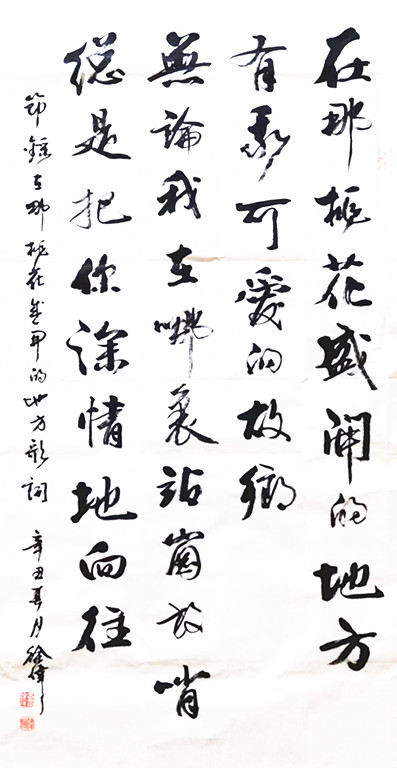 在那桃花盛開的地方
有我可愛的故鄉
無論我在哪裏站崗放哨
總是把你深情地向往
節錄在那桃花盛開的地方歌詞 辛丑夏月徐偉